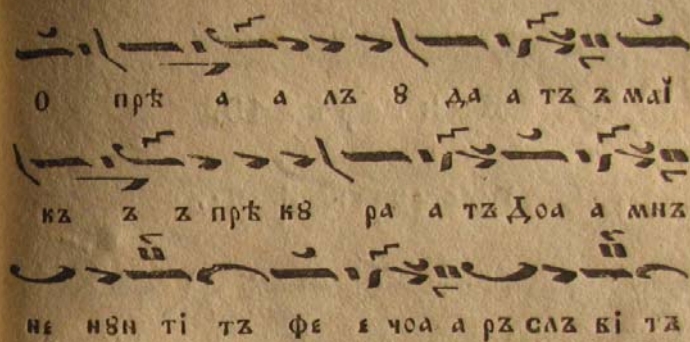 О прѣ а а лъ ꙋ да а тъ ъ маї
къ ъ ъ прѣ кꙋ ра а тъ Доа а мнъ
не нꙋн ті тъ фе е чоа а ръ слъ ві тъ